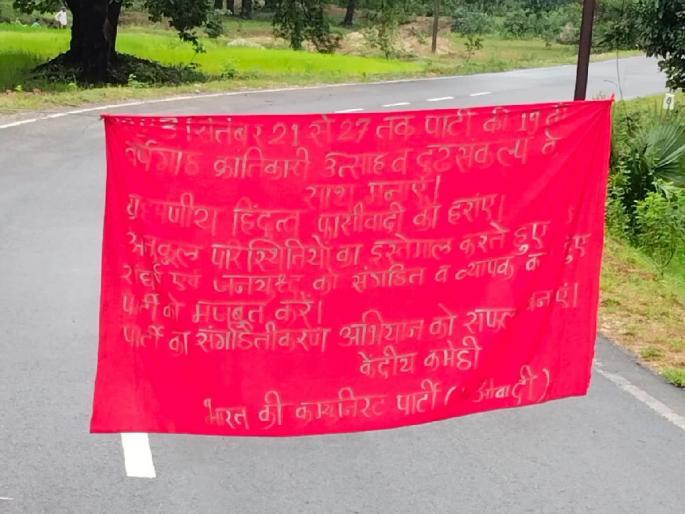 सितंबर 21 से 27 तक पार्टी की 19 वीं
वर्षगांठ क्रांतिकारी उत्साह व दृढ़संकल्प के
साथ मनाएं।
ब्राह्मणीय हिंदुत्व फासीवादी को हराएं।
अनुकूल परिस्थितियों का इस्तेमाल करते हुए
एवं जनयुद्ध को संगठित व व्यापक हुए
पार्टी को मजबूत करें।
पार्टी का संगठितीकरण अभियान को सफल बनाएं।
केंद्रीय कमेटी
भारत की कम्युनिस्ट पार्टी (माओवादी)